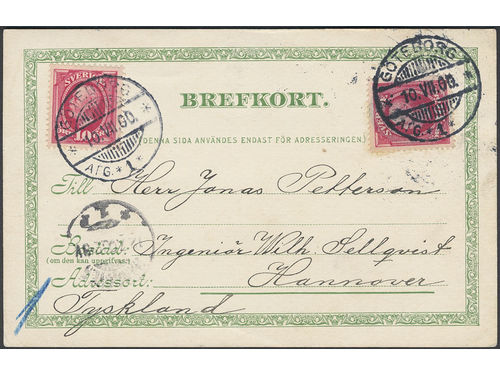 SVERIGE
GÖTEBORG
10.VII.00.
AFG.+1.
GÖTEBORG
10.VII.00.
AFG.+1.
BREFKORT.
(DENNA SIDA ANVÄNDES ENDAST FÖR ADRESSERINGEN.)
Till Herr Jonas Petterson
Bostad: Ingeniör Wilh. Sellqvist
(om den kan uppgifvas.)
Adressort: Hannover
Tyskland